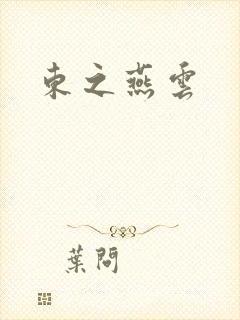 東之燕雲
葉問